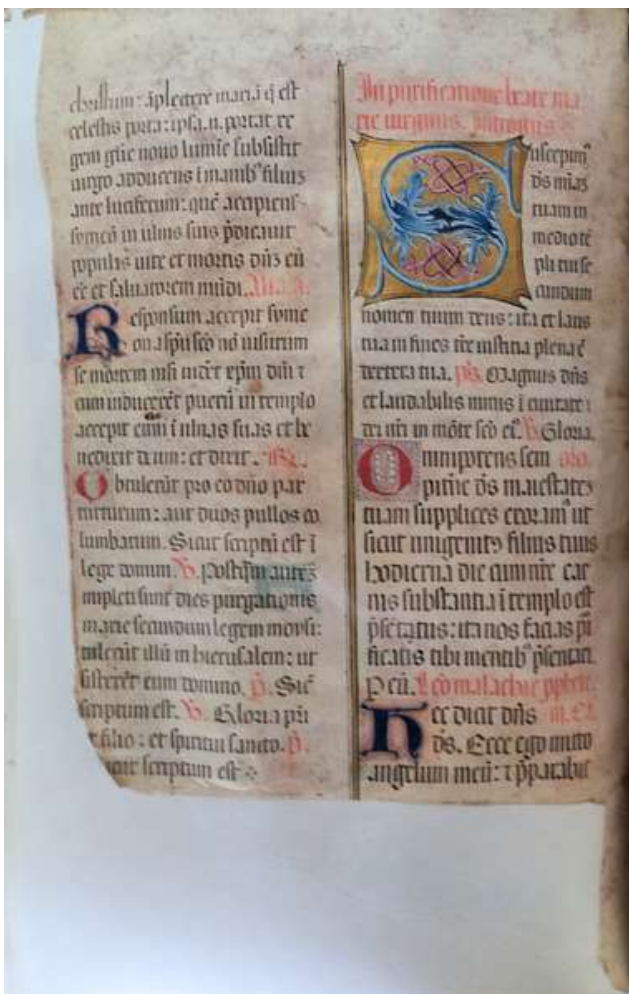 christum: āplectere mariā q̄ est
celestis porta: ipsa .n. portat re
gem gl̄ie nouo lumīe subsistit
uirgo adducens ī manibꝰ filiuꝫ
ante luciferum: quē accipiens
symeō in ulnis suis p̄dicauit
populis uite et mortis dn̄ꝫ eū
eē et saluatorem mūdi.
Responsum accepit syme
on a sp̄u sc̄o nō uisurum
se mortem nisi uidēt xp̄m dn̄i ⁊
cum inducerēt puerū in templo
accepit eum ī ulnas suas et be
nedixit deum: et dixit.
Obtulerūt pro eo dn̄o par
turturum: aut duos pullos co
lumbarum. Sicut scriptū est ī
lege domini. ℣. Postq̄m auteꝫ
impleti sunt dies purgationis
marie secundum legem moysi:
tulerūt illū in hierusalem: ut
sisterēt eum domino. p̄. Sic̄
scriptum est. ℣. Gloria pr̄i
et filio: et spiritui sancto. p̄.
sicut scriptum est
In purificatione beate ma
rie uirginis. Introitus
Suscepimꝰ
dꝰs mīaꝫ
tuam in
medio tē
pli tui se
cundum
nomen tuum deus: ita et laus
tua in fines tr̄e iustitia plena ē
dextera tua. ps̄. Magnus dn̄s
et laudabilis nimis ī ciuitate
dei nr̄i in mōte sc̄o eiꝰ. ℣. Gloria.
Omnipotens sem oro.
pit̄ne dꝰs maiestateꝫ
tuam supplices exoramꝰ ut
sicut unigenitꝰ filius tuus
hodierna die cum nr̄e car
nis substantia ī templo est
p̄sētatus: ita nos facias pu
rificatis tibi mentibꝰ p̄sentari.
P eū. Lēo malachie pphete.
Hec dicit dn̄s
dꝰs. Ecce ego mitto
angelum meū: ⁊ p̄parabit